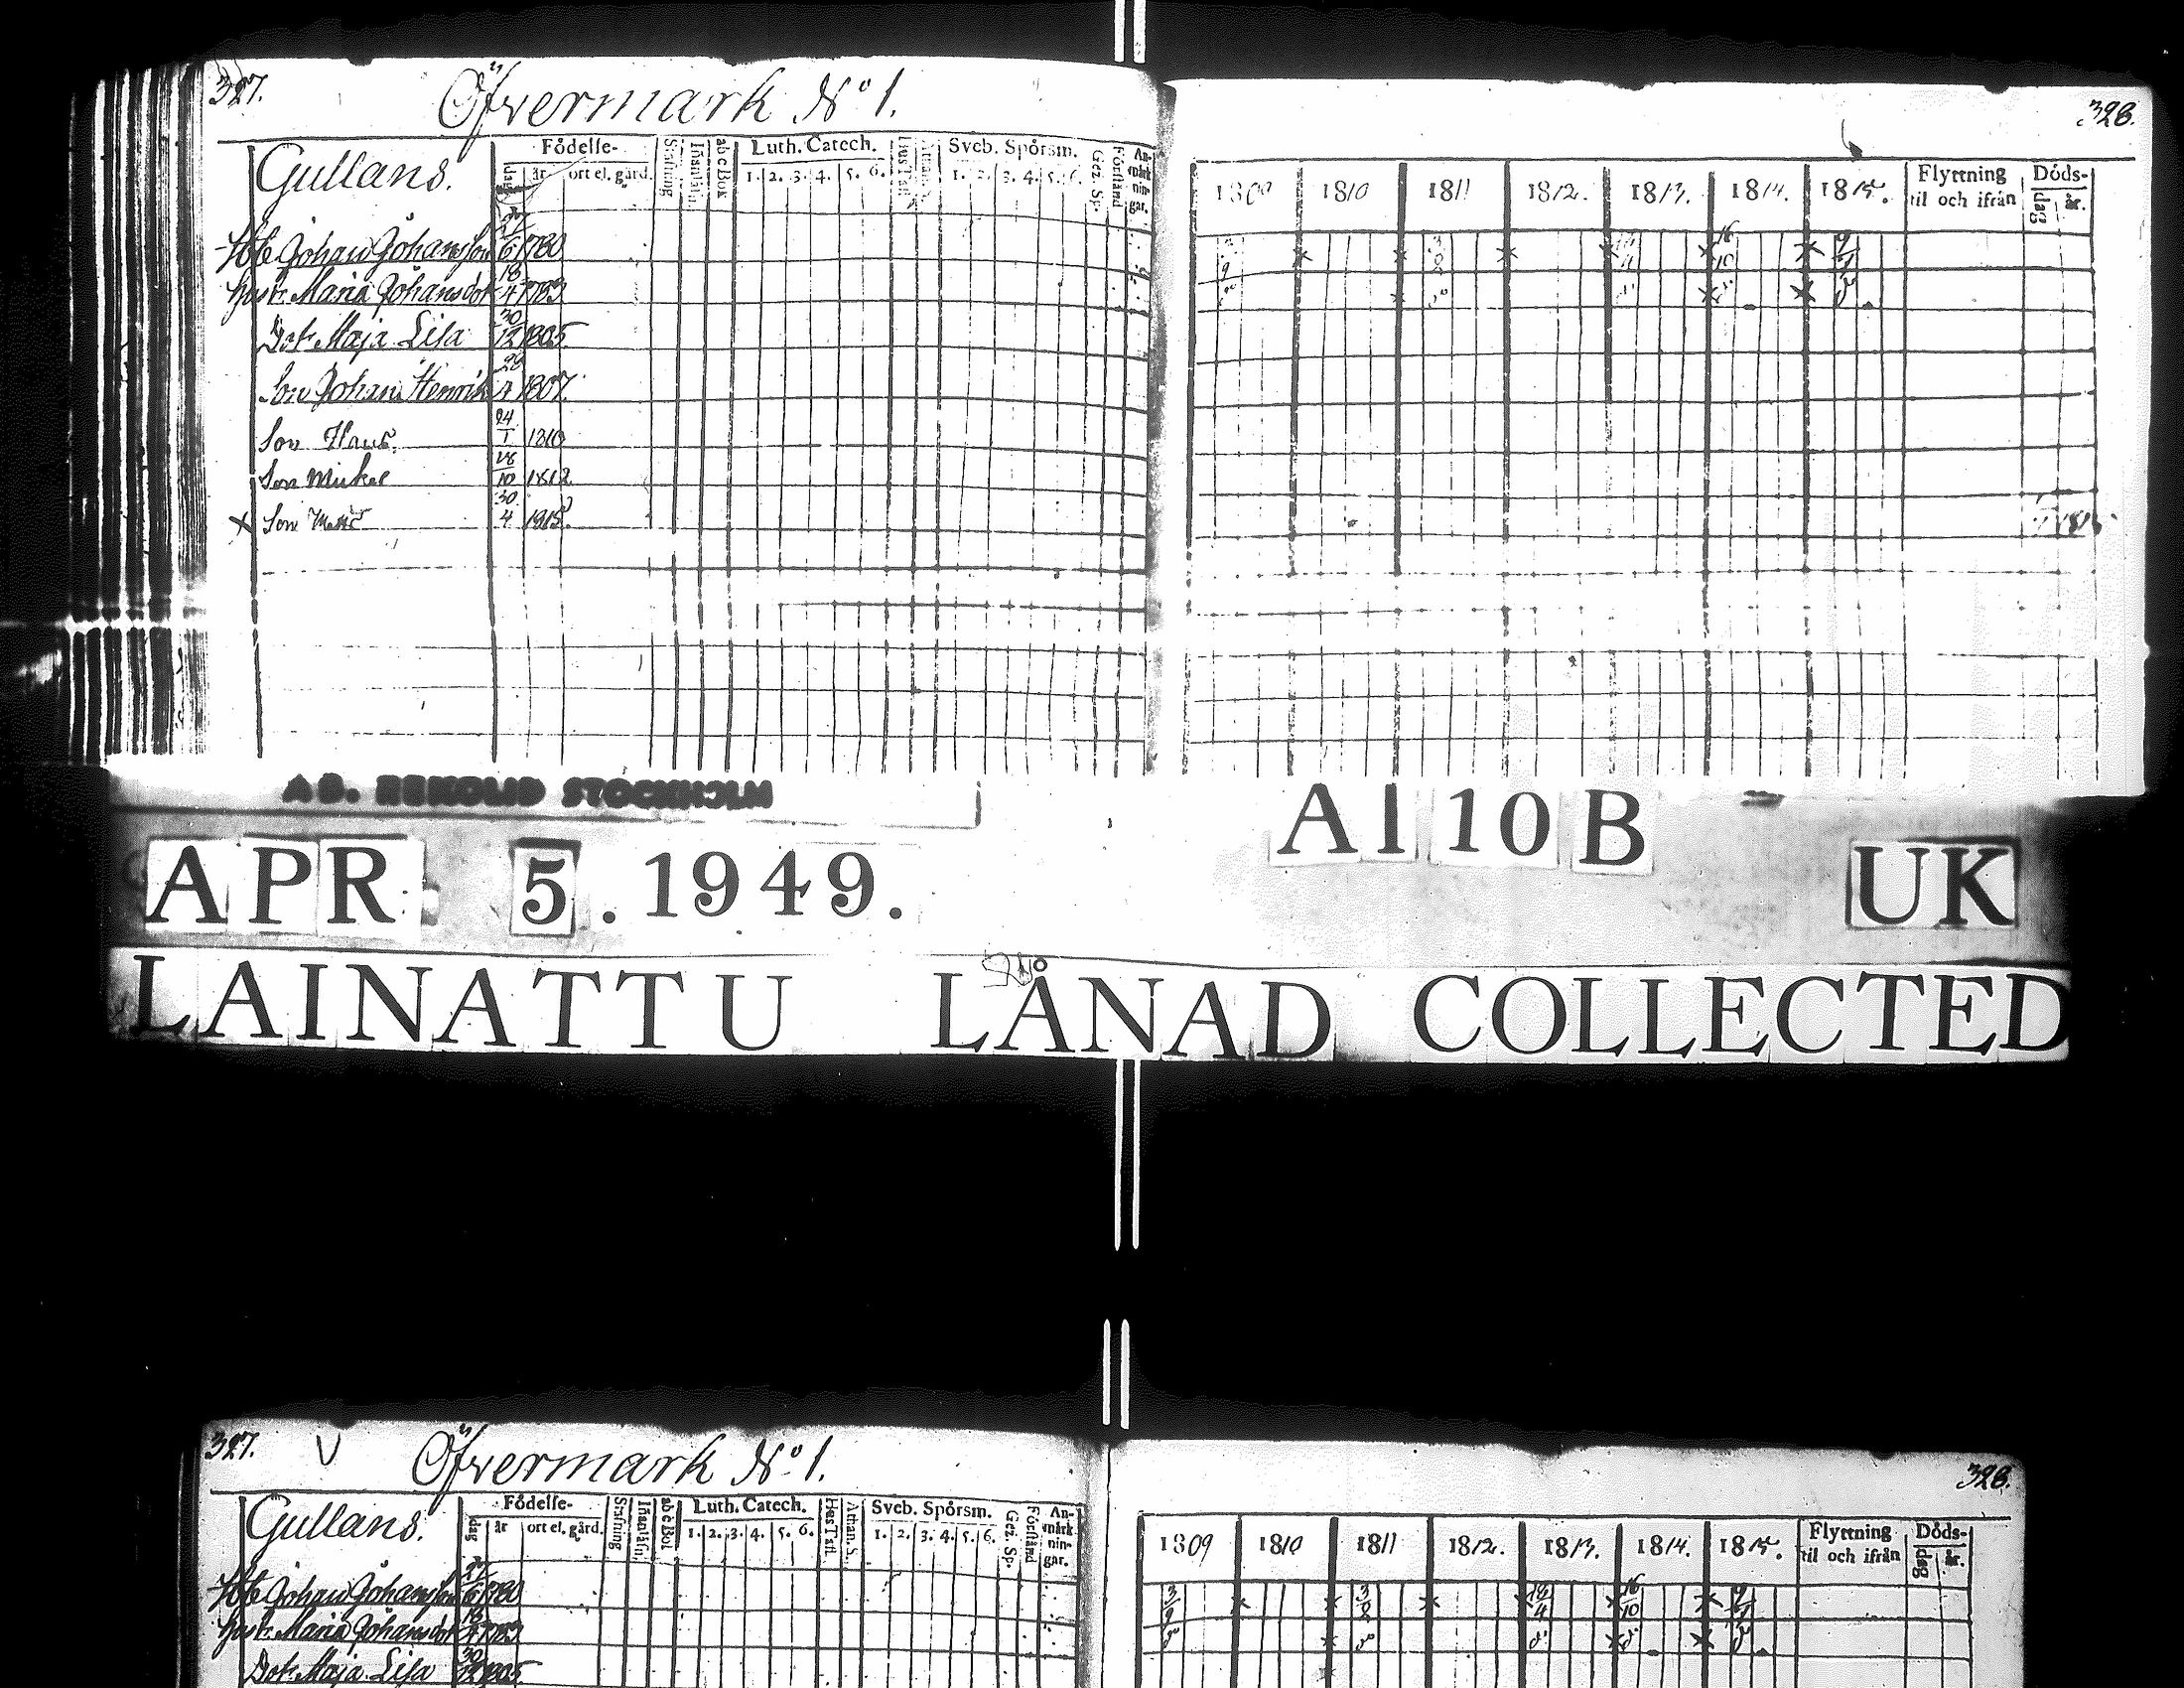 327.
Öfvermark No 1.
328.
Gullans.
Födelse-
dag
år
ort el. gård.
Stafning
Innanläsn.
abc Bok
Luth. Catech.
1. 2. 3. 4. 5. 6.
Hus Tafl.
Sveb. Spörsm.
1. 2. 3. 4. 5. 6.
Gez. Sp.
Förstånd
An-
märk
nin-
gar.
1809 1810 1811 1812. 1813. 1814. 1815.
Flyttning
til och ifrån
Döds-
dag år.
Johan Johansson 6 1780
Hust. Maria Johansdot 18/4 1783
Dot. Maja Lisa 30/12 1805
Son Johan Henrik 1807.
Son Hans 24/1 1810
Son Mickel 10 1812
x Son Matts 30/4 1815.
AB. REKOLID STOCKHOLM
APR 5.1949.
AI 10 B
UK
LAINATTU LÅNAD COLLECTED
327. V Öfvermark No 1.
328.
Gullans.
Födelse-
dag
år
ort el. gård.
Stafning
Innanläsn.
abc Bok
Luth. Catech.
1. 2. 3. 4. 5. 6.
Hus Tafl.
Athan. S.
Sveb. Spörsm.
1. 2. 3. 4. 5. 6.
Gez. Sp.
Förstånd
An-
märk
nin-
gar.
1809 1810 1811 1812. 1813. 1814. 1815.
Flyttning
til och ifrån
Döds-
dag år.
Johan Johansson 6 1780
Hust. Maria Johansdot 18/4 1783
Dot. Maja Lisa 30/12 1805.